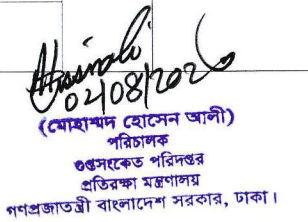 02/08/2026
(মোহাম্মদ হোসেন আলী)
পরিচালক
গুপ্তসংকেত পরিদপ্তর
প্রতিরক্ষা মন্ত্রণালয়
গণপ্রজাতন্ত্রী বাংলাদেশ সরকার, ঢাকা।